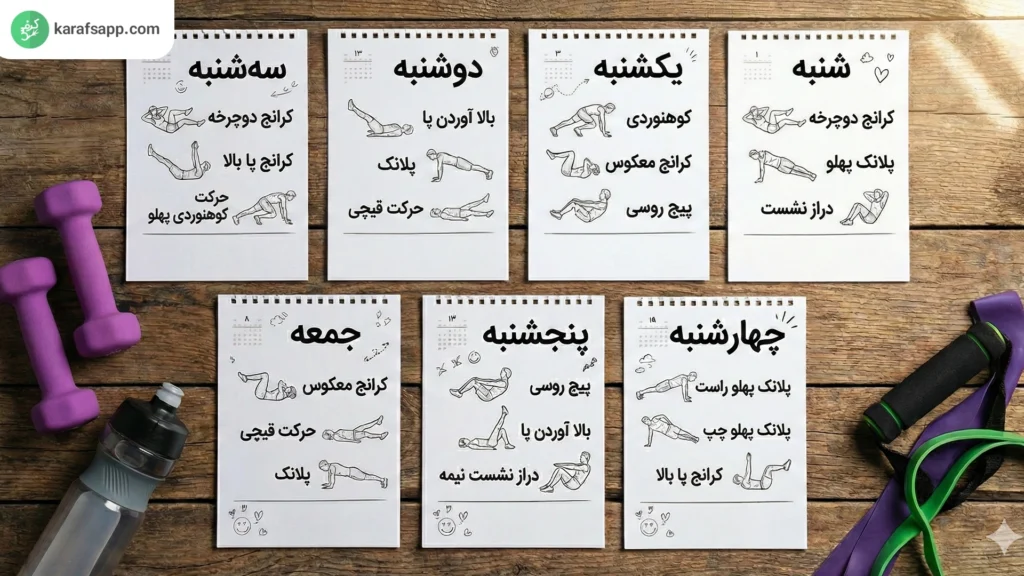 karafsapp.com
شنبه
۱
کرانچ دوچرخه
پلانک پهلو
دراز نشست
یکشنبه
۳
کوهنوردی
کرانچ معکوس
پیچ روسی
دوشنبه
۱۳
بالا آوردن پا
پلانک
حرکت قیچی
سه‌شنبه
کرانچ دوچرخه
کرانچ پا بالا
حرکت
کوهنوردی پهلو
چهارشنبه
پلانک پهلو راست
پلانک پهلو چپ
کرانچ پا بالا
پنجشنبه
۱۳
پیچ روسی
بالا آوردن پا
دراز نشست نیمه
جمعه
۸
کرانچ معکوس
حرکت قیچی
پلانک